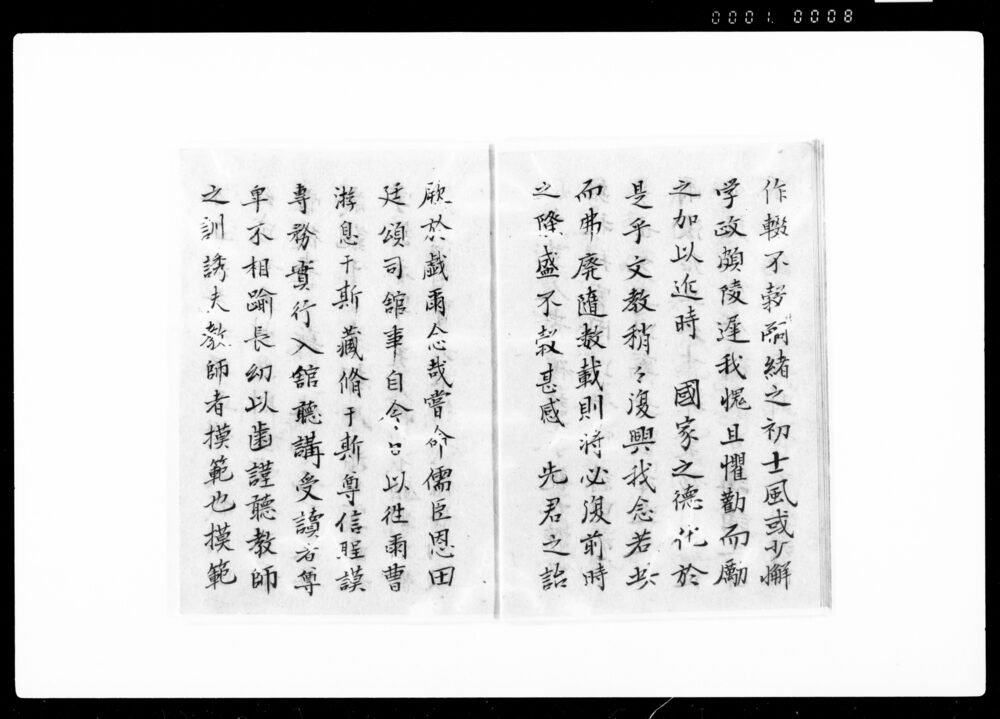 0001. 0008
作輟不穀嗣緒之初士風或少懈
学政頗陵遅我愧且懼勸而勵
之加以近時 國家之德化於
是乎文教稍々復興我念若此
而弗廃隨数載則将必復前時
之隆盛不穀甚感 先君之詒
厥於戯爾念哉嘗命儒臣恩田
廷頌司舘事自今日以徃爾曹
游息于斯藏脩于斯尊信聖謨
専務實行入舘聽講受讀者尊
卑不相踰長幼以歯謹聽教師
之訓誘夫教師者摸範也摸範